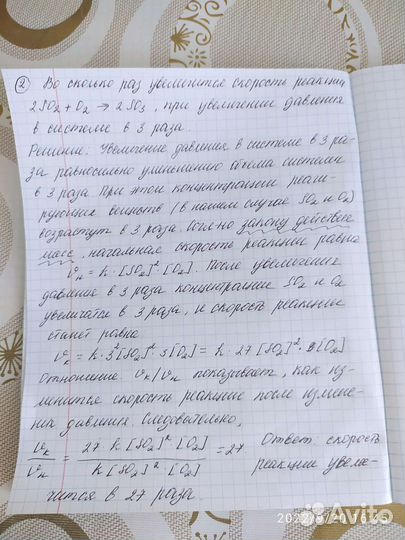 ② Во сколько раз увеличится скорость реакции
2SO₂ + O₂ → 2SO₃, при увеличение давления
в системе в 3 раза.
Решение: Увеличение давления в системе в 3 ра-
за равносильно уменьшению объема системы
в 3 раза. При этом концентрации реаги-
рующих веществ (в нашем случае SO₂ и O₂)
возрастут в 3 раза. Согл-но закону действ.
масс, начальная скорость реакции равна
υₙ = k · [SO₂]² [O₂]. После увеличения
давление в 3 раза концентрация SO₂ и O₂
увеличатся в 3 раза, и скорость реакции
станет равна
υₖ = k · 3² [SO₂]² 3 [O₂] = k · 27 [SO₂]² · [O₂]
Отношение υₖ/υₙ показывает, как из-
менится скорость реакции после измене-
ния давления. Следовательно,
υₖ/υₙ = 27 k [SO₂]² [O₂] / k [SO₂]² · [O₂] = 27 Ответ: скорость
реакции увели-
чится в 27 раза.
2022/8/20 16:45
Avito